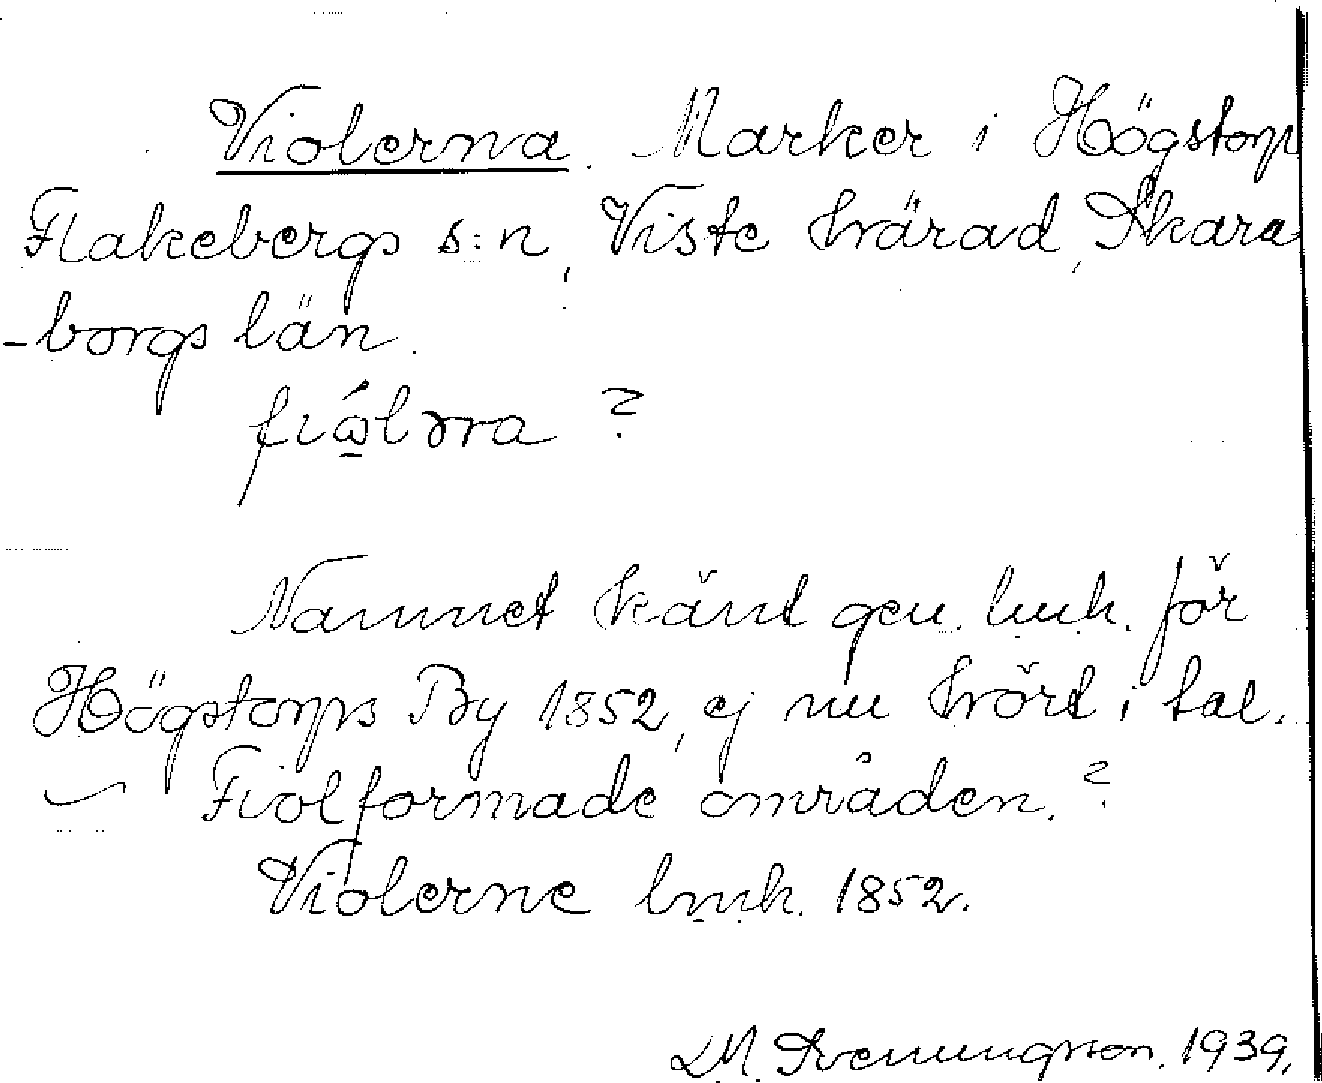 Violerna. Marker i Högstorp
Flakebergs s:n, Viste härad, Skara
-borgs län.
fiólɔra ?
Namnet känt gen. lmh. för
Högstorps By 1852, ej nu hört i tal.
Fiolformade områden. ?
Violerne lmh. 1852.
D.M. Svenungsson. 1939.